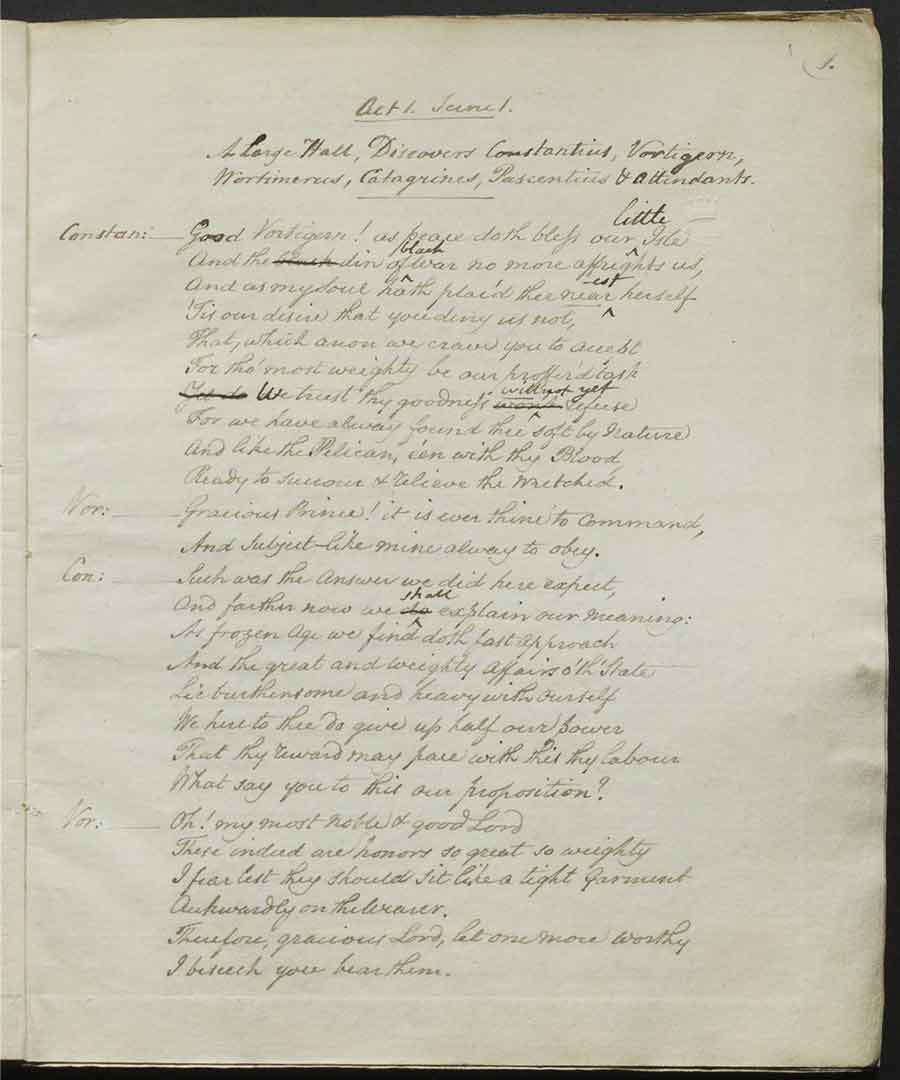 1.
Act 1. Scene 1.
A Large Hall, Discovers Constantius, Vortigern,
Wortimerus, Catagrines, Pascentius & attendants.
little
Constan: Good Vortigern! as peace doth bless our Isle
black
And the black din of war no more affrights us,
est
And as my soul hath plac'd thee near herself
'Tis our desire that you deny us not,
That, which anon we crave you to accept
For tho' most weighty be our proffer'd task
will not yet
Yet do We trust thy goodness wont refuse
For we have always found thee soft by Nature
And like the Pelican, e'en with thy Blood
Ready to succour & relieve the Wretched.
Vor: Gracious Prince! it is ever thine to Command,
And Subject-like mine alway to obey.
Con: Such was the Answer we did here expect,
shall
And farther now we do explain our meaning:
As frozen Age we find doth fast approach
And the great and weighty affairs o'th' State
Lie burthensome and heavy with Ourself
We here to thee do give up half our power
That thy reward may pace with this thy labour
What say you to this our proposition?
Vor: Oh! my most noble & good Lord
These indeed are honors so great so weighty
I fear lest they should sit like a tight Garment
Awkwardly on the Wearer.
Therefore, gracious Lord, let one more worthy
I beseech you bear them.